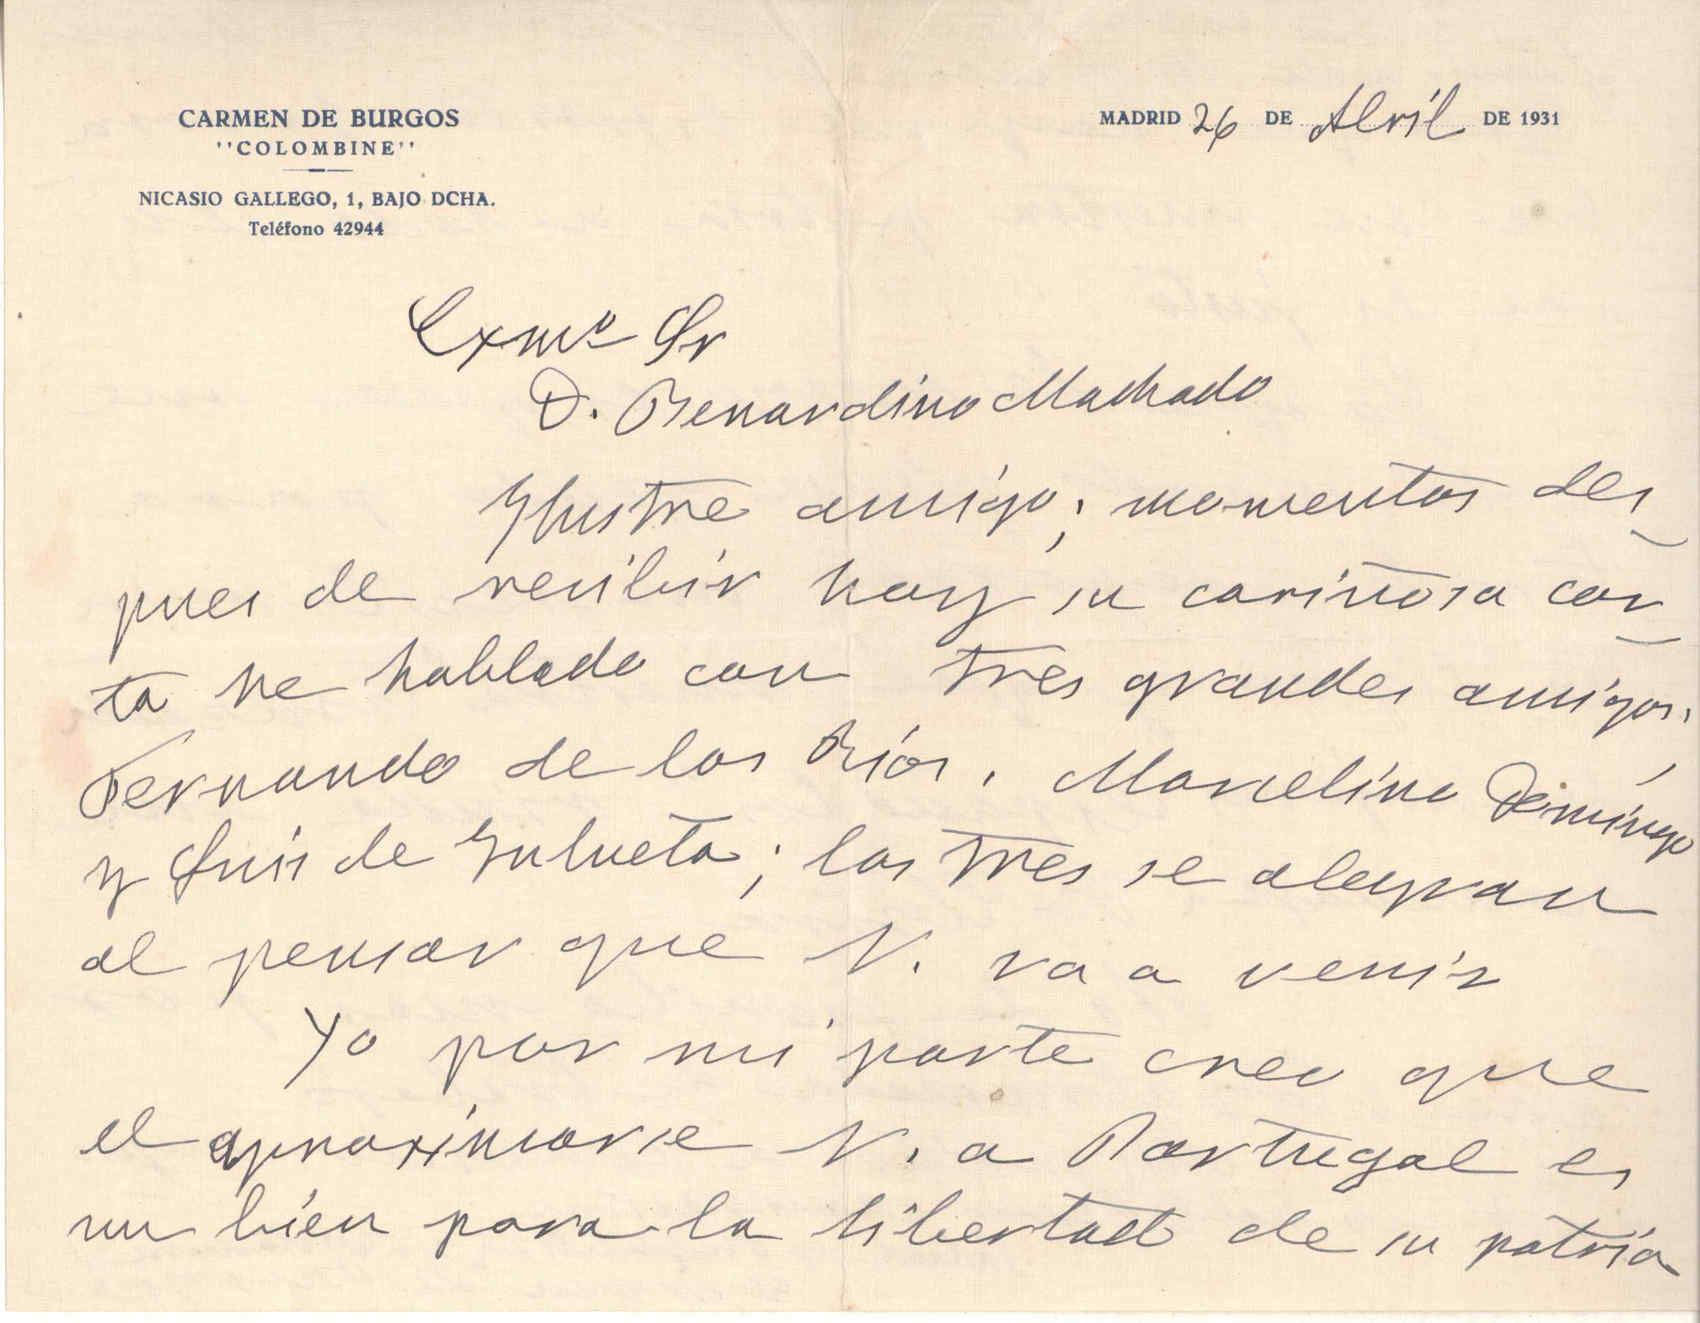 CARMEN DE BURGOS
"COLOMBINE"
NICASIO GALLEGO, 1, BAJO DCHA.
Teléfono 42944
MADRID 26 DE Abril DE 1931
Exmº Sr
D. Benardino Machado
Ylustre amigo; momentos des-
pues de recibir hoy su cariñosa car-
ta he hablado con tres grandes amigos,
Fernando de los Ríos, Marcelino Domíngo
y Luis de Zulueta; los tres se alegran
al pensar que V. va a venir
Yo por mi parte creo que
el aproximarse V. a Portugal es
un bien para la libertad de su patria